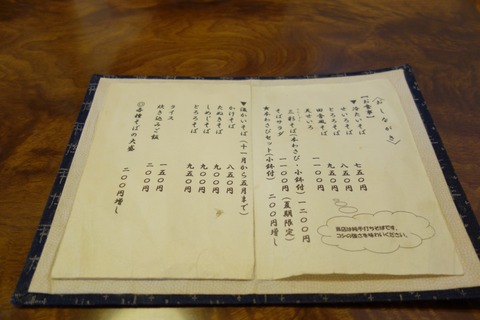 （おしながき）
【お食事】
▼冷たいそば
せいろそば 七五〇円
とろろそば 八五〇円
田舎風そば 九五〇円
天せいろ 一一〇〇円
三彩そば（本わさび・小鉢付） 一二〇〇円
そばサラダ 一一〇〇円（夏期限定）
★本わさびセット（小鉢付） 二〇〇円増し
当店は純手打ちそばです。
コシの強さを味わいください。
▼温かいそば（十一月から五月まで）
かけそば 八五〇円
たぬきそば 九〇〇円
しめじそば 九〇〇円
とろろそば 九五〇円
ライス 一五〇円
炊き込みご飯 二〇〇円
◎各種そばの大盛 二〇〇円増し